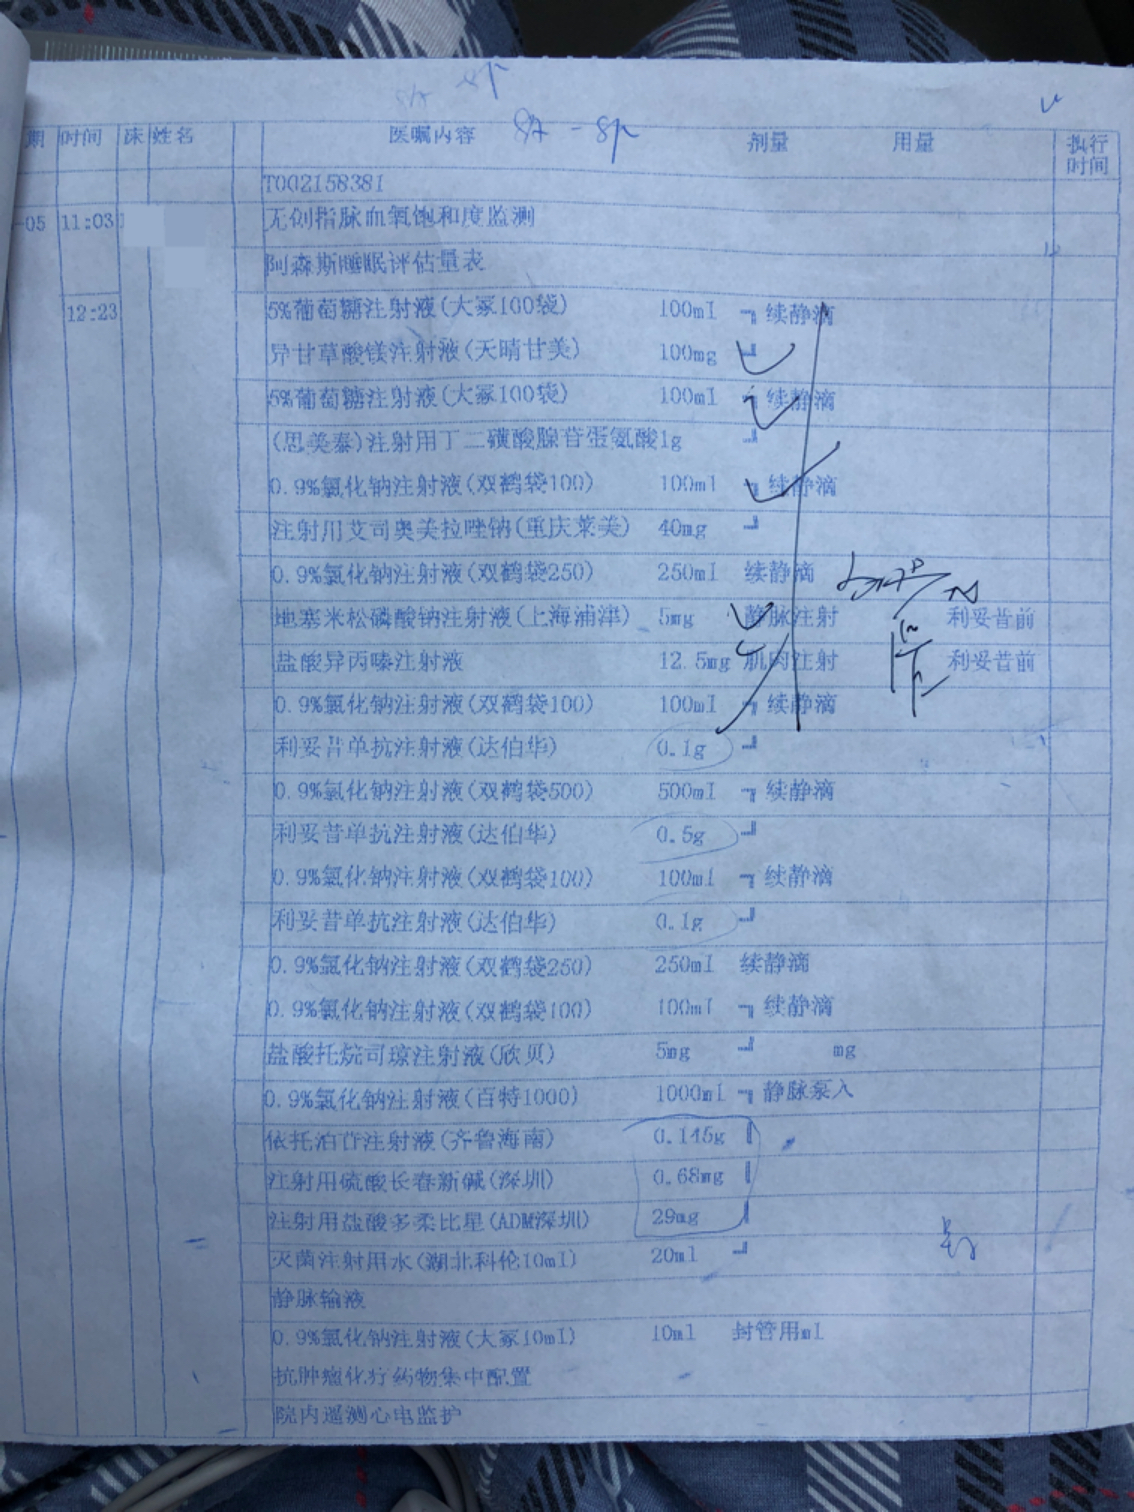 期 时间 床 姓名 医嘱内容 剂量 用量 执行时间
T002158381
-05 11:03 无创指脉血氧饱和度监测
阿森斯睡眠评估量表
12:23 5%葡萄糖注射液(大冢100袋) 100ml ┓ 续静滴
异甘草酸镁注射液(天晴甘美) 100mg ┛
5%葡萄糖注射液(大冢100袋) 100ml ┓ 续静滴
(思美泰)注射用丁二磺酸腺苷蛋氨酸1g ┛
0.9%氯化钠注射液(双鹤袋100) 100ml ┓ 续静滴
注射用艾司奥美拉唑钠(重庆莱美) 40mg ┛
0.9%氯化钠注射液(双鹤袋250) 250ml 续静滴
地塞米松磷酸钠注射液(上海浦津) 5mg 静脉注射 利妥昔前
盐酸异丙嗪注射液 12.5mg 肌肉注射 利妥昔前
0.9%氯化钠注射液(双鹤袋100) 100ml ┓ 续静滴
利妥昔单抗注射液(达伯华) 0.1g ┛
0.9%氯化钠注射液(双鹤袋500) 500ml ┓ 续静滴
利妥昔单抗注射液(达伯华) 0.5g ┛
0.9%氯化钠注射液(双鹤袋100) 100ml ┓ 续静滴
利妥昔单抗注射液(达伯华) 0.1g ┛
0.9%氯化钠注射液(双鹤袋250) 250ml 续静滴
0.9%氯化钠注射液(双鹤袋100) 100ml ┓ 续静滴
盐酸托烷司琼注射液(欣贝) 5mg ┛ mg
0.9%氯化钠注射液(百特1000) 1000ml ┓ 静脉泵入
依托泊苷注射液(齐鲁海南) 0.145g ┃
注射用硫酸长春新碱(深圳) 0.68mg ┃
注射用盐酸多柔比星(ADM深圳) 29mg ┃
灭菌注射用水(湖北科伦10ml) 20ml ┛
静脉输液
0.9%氯化钠注射液(大冢10ml) 10ml 封管用ml
抗肿瘤化疗药物集中配置
院内遥测心电监护